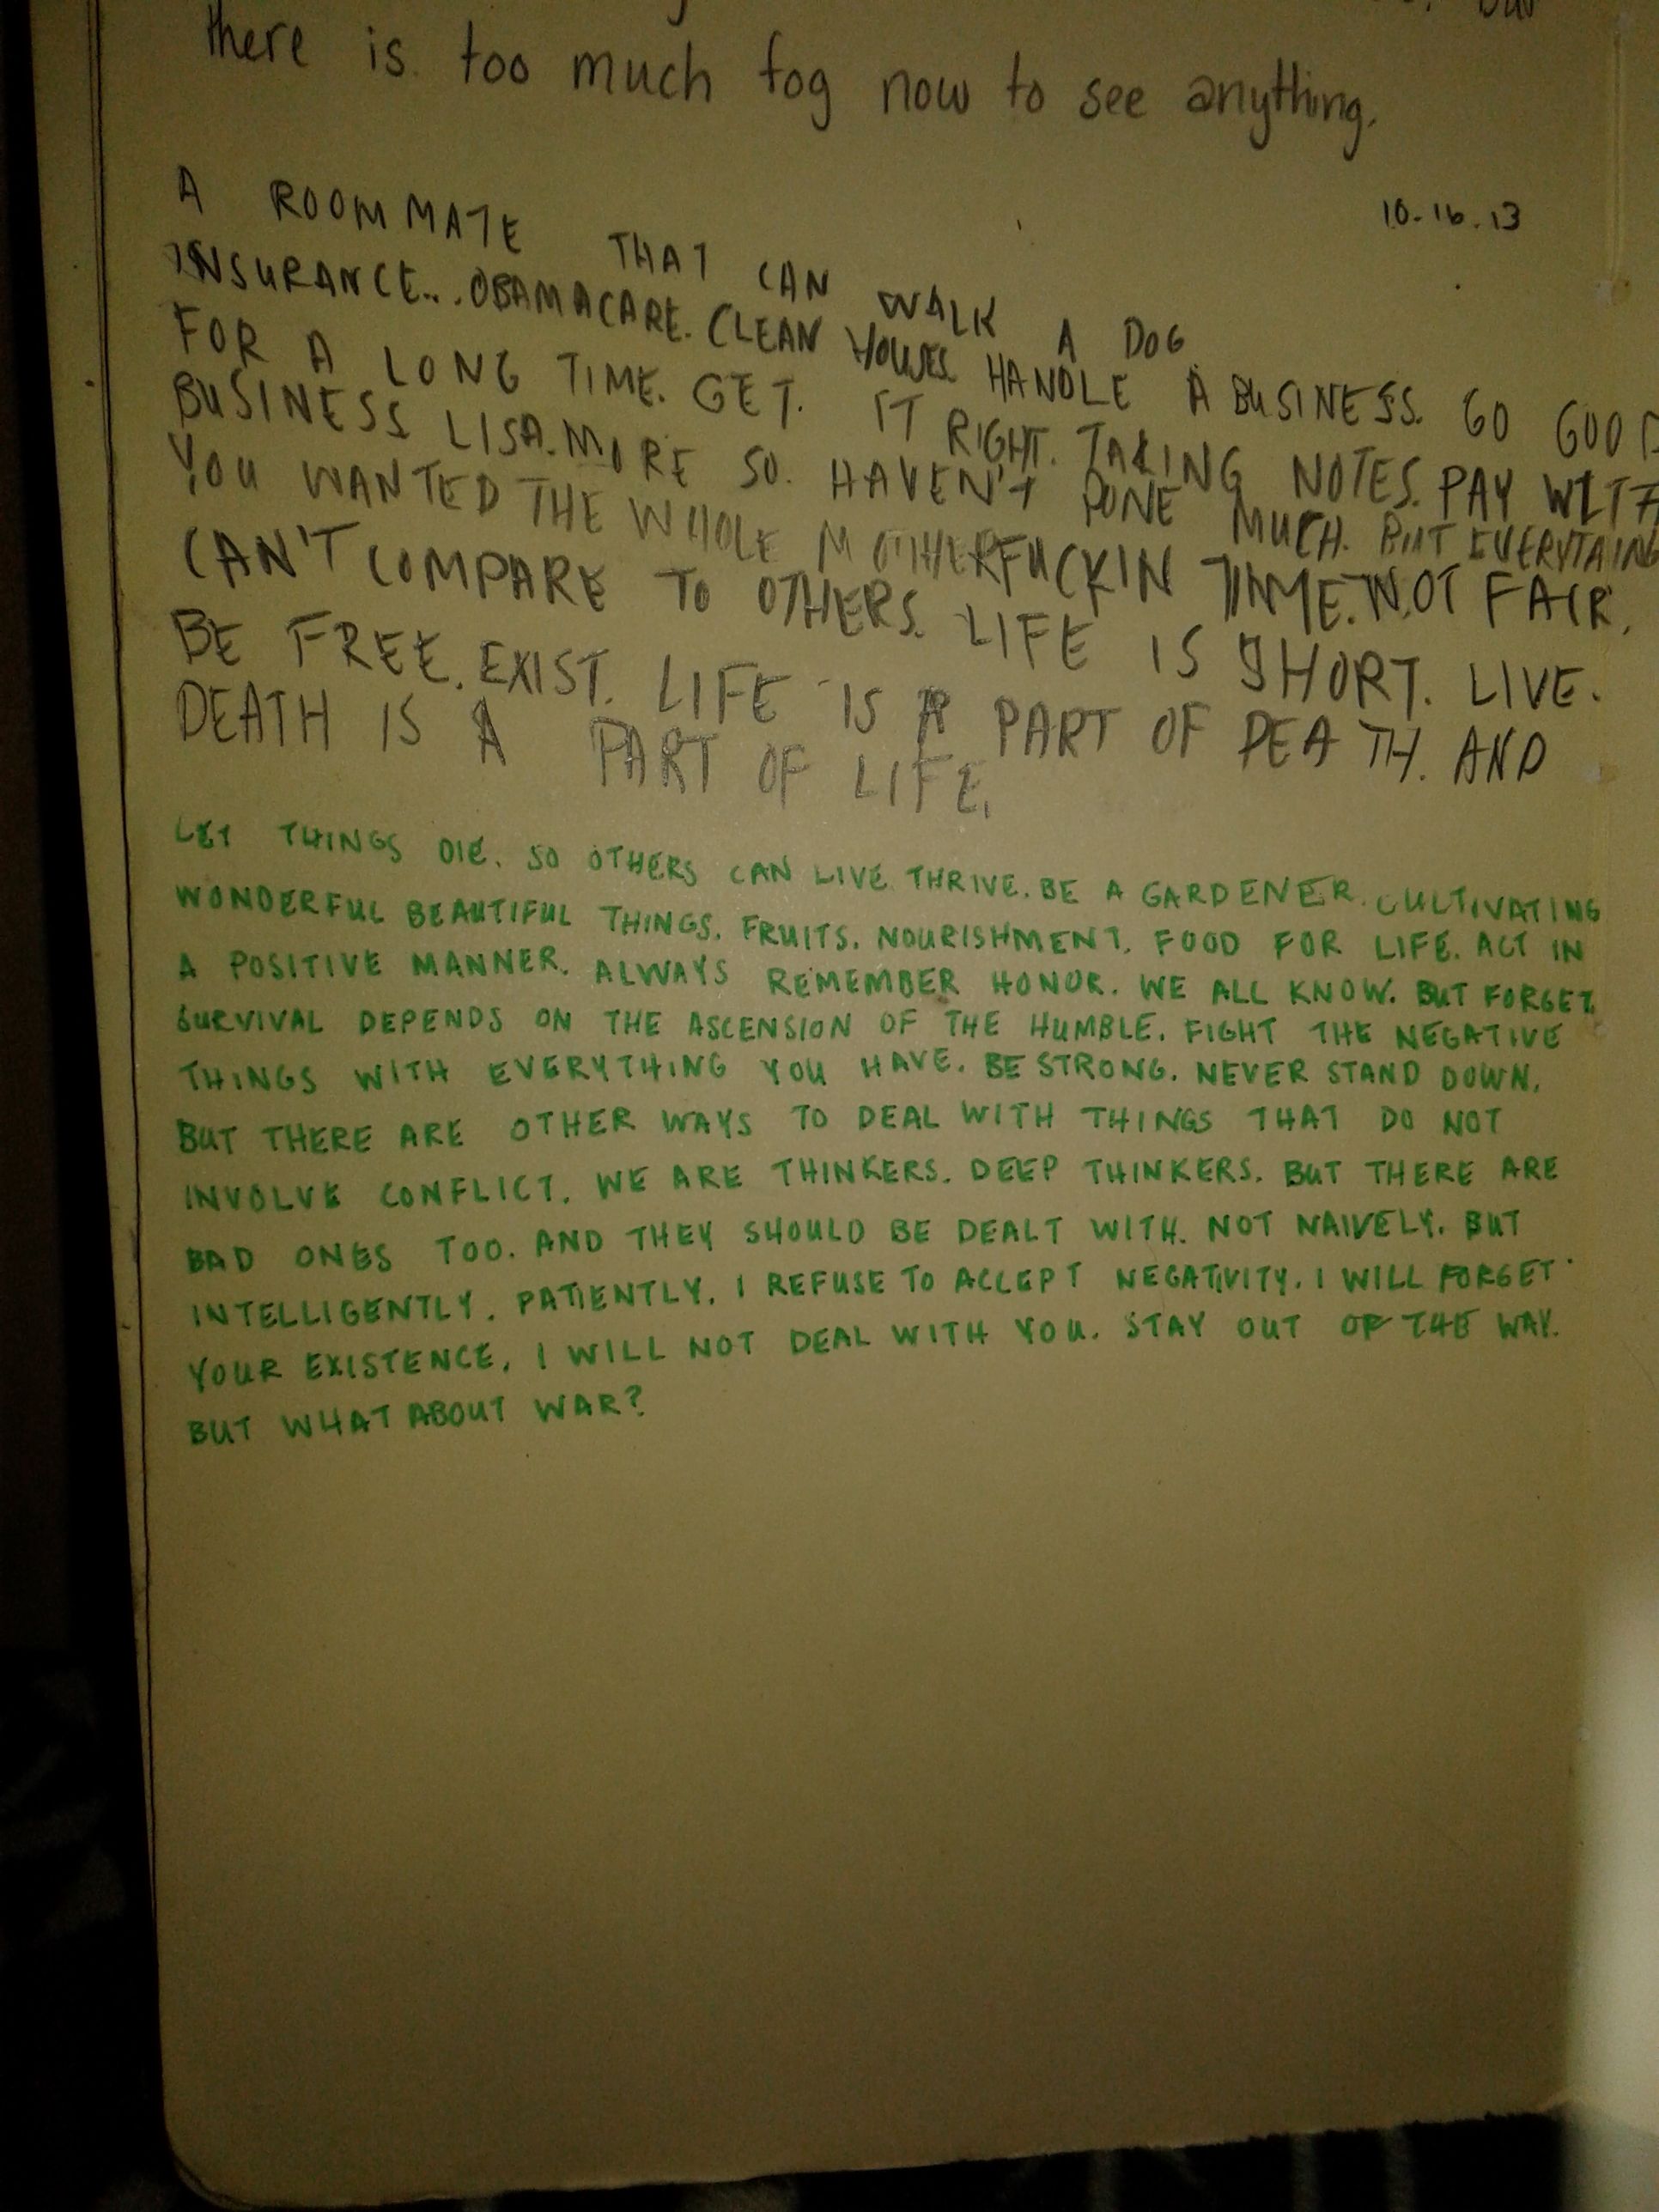 there is too much fog now to see anything.
10.16.13
A ROOMMATE THAT CAN WALK A DOG
INSURANCE... OBAMACARE. CLEAN HOUSES. HANDLE A BUSINESS. GO GOOD
FOR A LONG TIME. GET. IT RIGHT. TAKING NOTES. PAY WITH
BUSINESS LISA. MORE SO. HAVEN'T DONE MUCH. BUT EVERYTHING
YOU WANTED THE WHOLE MOTHERFUCKIN TIME. NOT FAIR.
CAN'T COMPARE TO OTHERS. LIFE IS SHORT. LIVE.
BE FREE. EXIST. LIFE IS A PART OF DEATH. AND
DEATH IS A PART OF LIFE.
LET THINGS DIE. SO OTHERS CAN LIVE. THRIVE. BE A GARDENER. CULTIVATING
WONDERFUL BEAUTIFUL THINGS. FRUITS. NOURISHMENT. FOOD FOR LIFE. ACT IN
A POSITIVE MANNER. ALWAYS REMEMBER HONOR. WE ALL KNOW. BUT FORGET.
SURVIVAL DEPENDS ON THE ASCENSION OF THE HUMBLE. FIGHT THE NEGATIVE
THINGS WITH EVERYTHING YOU HAVE. BE STRONG. NEVER STAND DOWN.
BUT THERE ARE OTHER WAYS TO DEAL WITH THINGS THAT DO NOT
INVOLVE CONFLICT. WE ARE THINKERS. DEEP THINKERS. BUT THERE ARE
BAD ONES TOO. AND THEY SHOULD BE DEALT WITH. NOT NAIVELY. BUT
INTELLIGENTLY. PATIENTLY. I REFUSE TO ACCEPT NEGATIVITY. I WILL FORGET
YOUR EXISTENCE. I WILL NOT DEAL WITH YOU. STAY OUT OF THE WAY.
BUT WHAT ABOUT WAR?